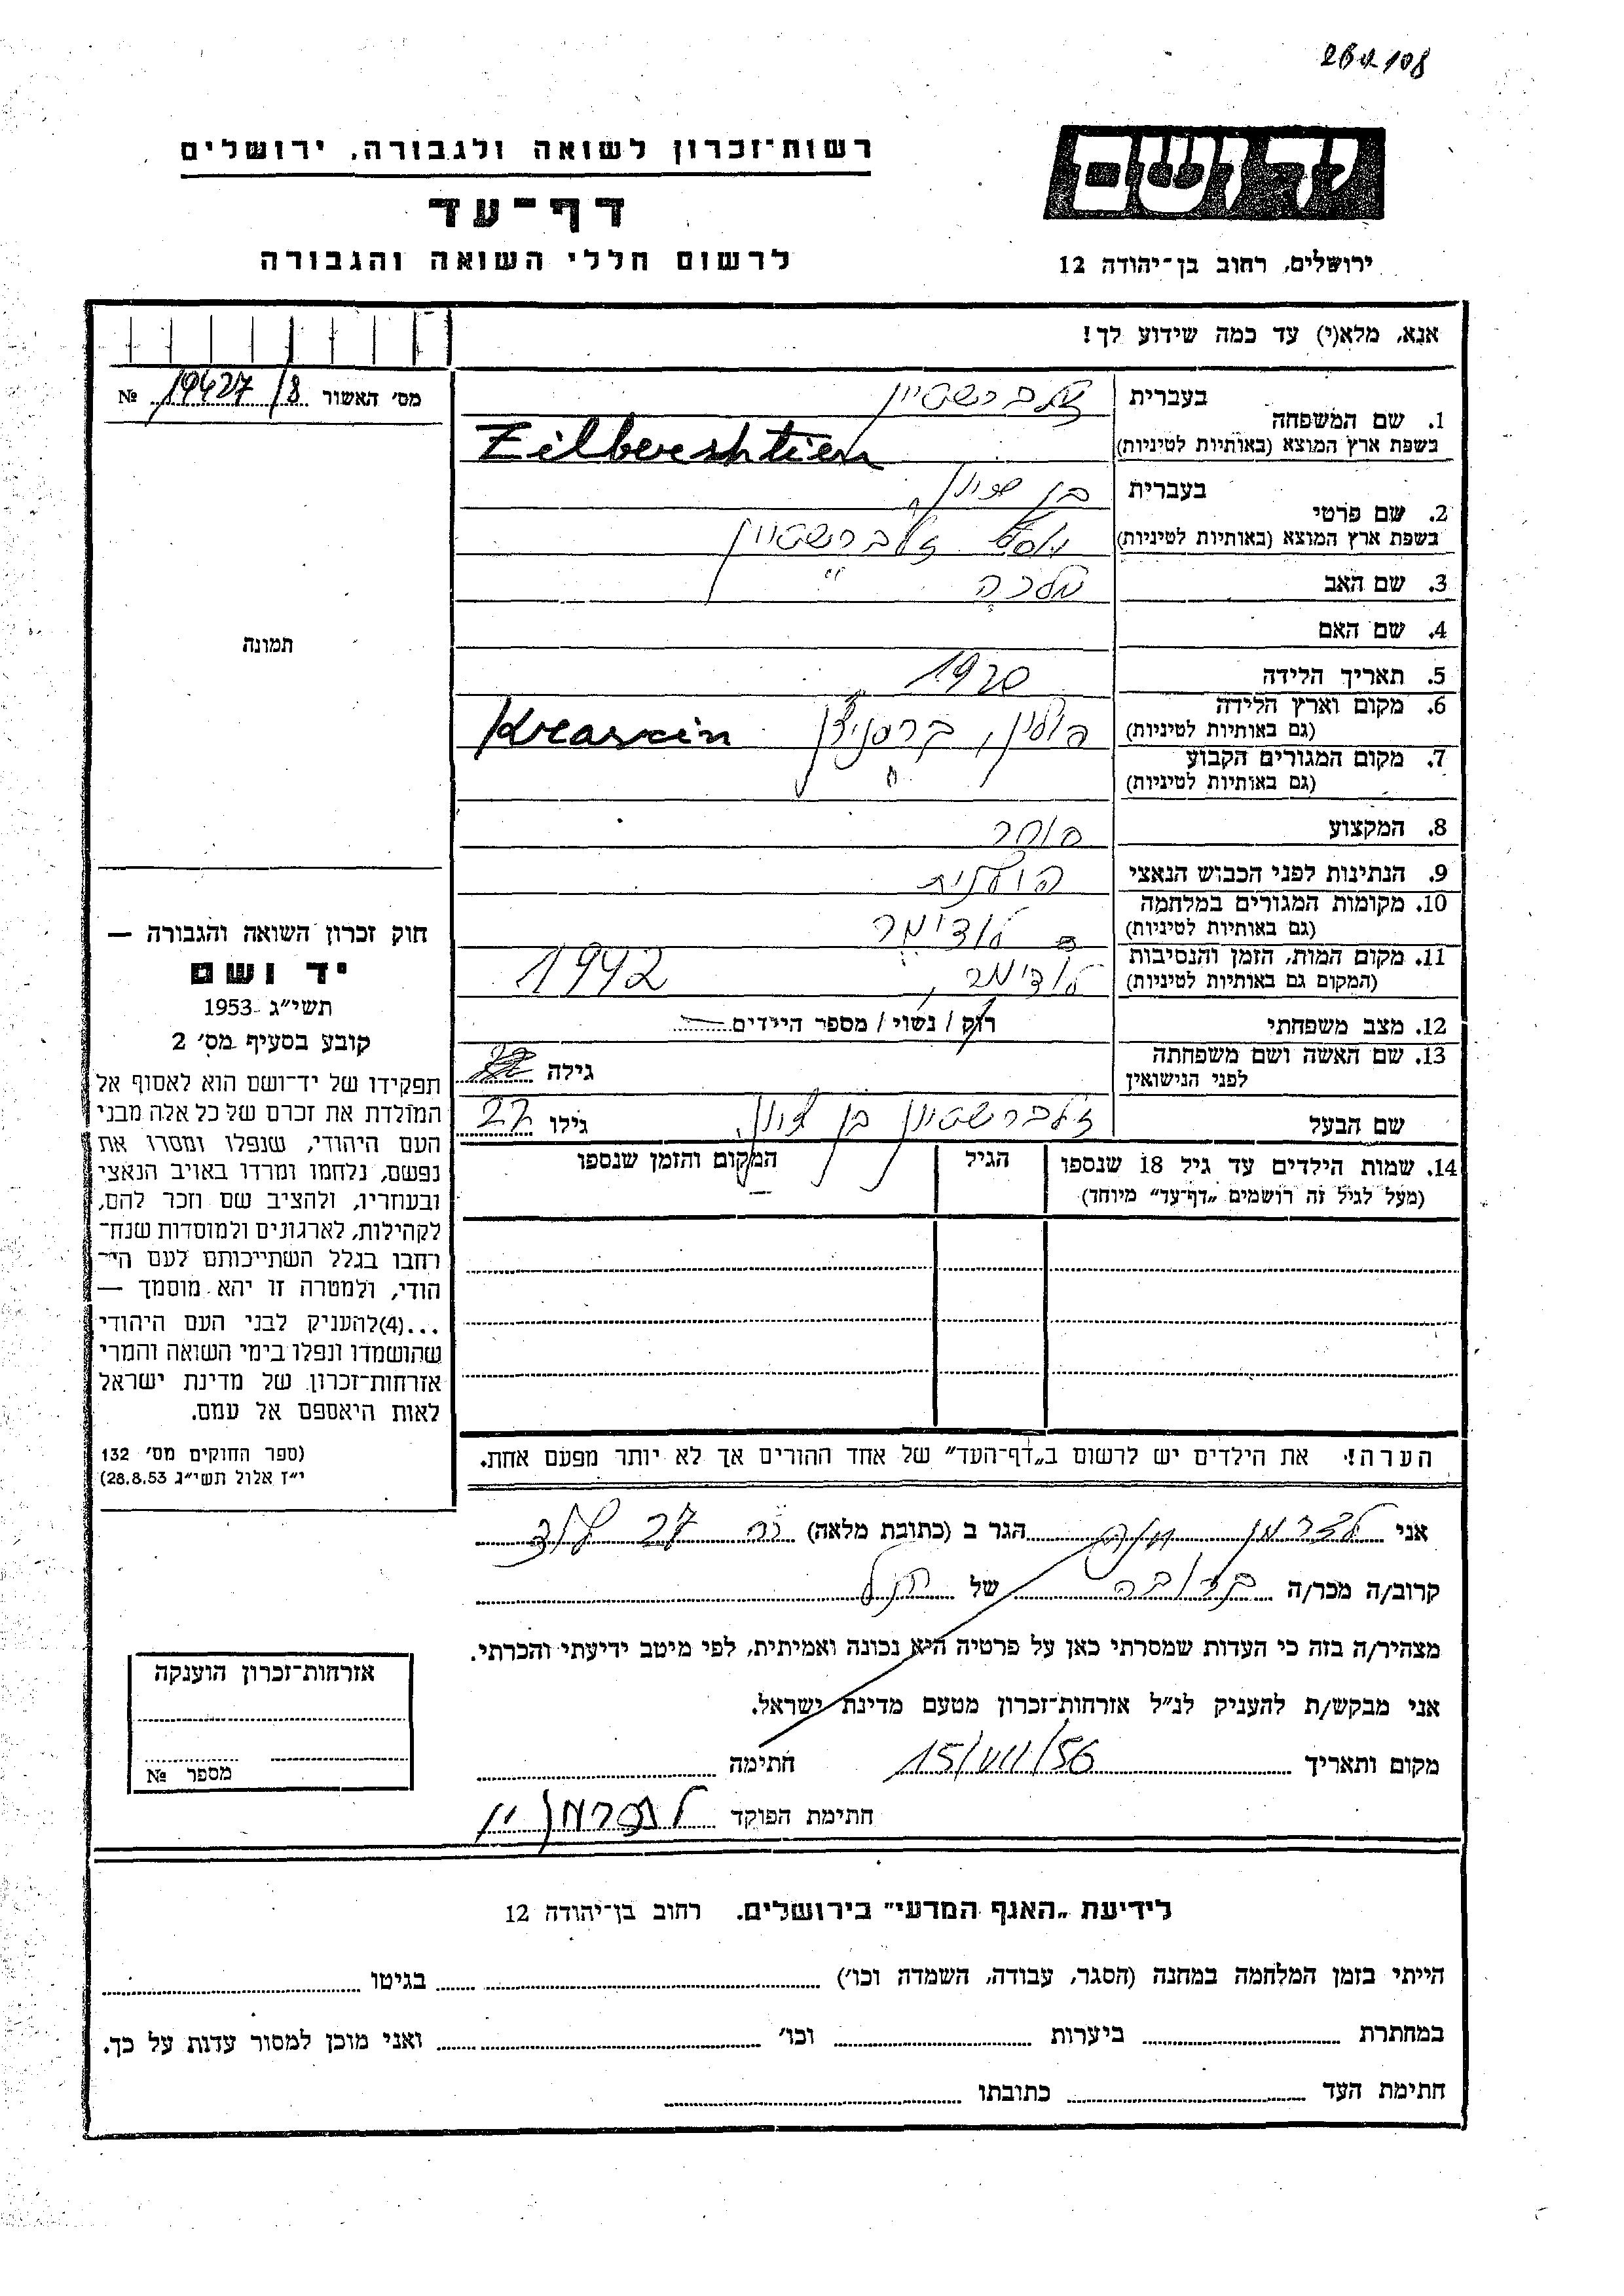 262108
רשות־זכרון לשואה ולגבורה, ירושלים
דף־עד
לרשום חללי השואה והגבורה
יד ושם
ירושלים, רחוב בן־יהודה 12
אנא, מלא(י) עד כמה שידוע לך!
מס׳ האשור 19427/8 №
1. שם המשפחה
בעברית זילברשטיין
בשפת ארץ המוצא (באותיות לטיניות) Zilbershtien
2. שם פרטי
בעברית בן ציון
בשפת ארץ המוצא (באותיות לטיניות) זילברשטיין
3. שם האב מלכה ״
4. שם האם
5. תאריך הלידה 1920
6. מקום וארץ הלידה
(גם באותיות לטיניות) פולין,
7. מקום המגורים הקבוע
(גם באותיות לטיניות) ״
8. המקצוע סוחר
9. הנתינות לפני הכבוש הנאצי פולנית
10. מקומות המגורים במלחמה
(גם באותיות לטיניות) לודימר
11. מקום המות, הזמן והנסיבות
(המקום גם באותיות לטיניות) לודימר, 1942
12. מצב משפחתי רוק / נשוי / מספר הילדים
13. שם האשה ושם משפחתה
לפני הנישואין
גילה
שם הבעל זילברשטיין בן ציון
גילו 22
14. שמות הילדים עד גיל 18 שנספו
(מעל לגיל זה רושמים „דף־עד״ מיוחד)
הגיל
המקום והזמן שנספו
תמונה
חוק זכרון השואה והגבורה —
יד ושם
תשי״ג -1953
קובע בסעיף מס׳ 2
תפקידו של יד־ושם הוא לאסוף אל
המולדת את זכרם של כל אלה מבני
העם היהודי, שנפלו ומסרו את
נפשם, נלחמו ומרדו באויב הנאצי
ובעוזריו, ולהציב שם וזכר להם,
לקהילות, לארגונים ולמוסדות שנח־
רחבו בגלל השתייכותם לעם הי־
הודי, ולמטרה זו יהא מוסמך —
...(4)להעניק לבני העם היהודי
שהושמדו ונפלו בימי השואה והמרי
אזרחות־זכרון של מדינת ישראל
לאות היאספם אל עמם.
(ספר החוקים מס׳ 132
י״ז אלול תשי״ג 28.8.53)
הערה! את הילדים יש לרשום ב„דף־העד״ של אחד ההורים אך לא יותר מפעם אחת.
אני לדרמן חנה הגר ב (כתובת מלאה) 27
קרוב/ה מכר/ה קרובה של הנ״ל
מצהיר/ה בזה כי העדות שמסרתי כאן על פרטיה היא נכונה ואמיתית, לפי מיטב ידיעתי והכרתי.
אני מבקש/ת להעניק לנ״ל אזרחות־זכרון מטעם מדינת ישראל.
מקום ותאריך 15/VII/56 חתימה
חתימת הפוקד
אזרחות־זכרון הוענקה
מספר №
לידיעת „האגף המדעי״ בירושלים. רחוב בן־יהודה 12
הייתי בזמן המלחמה במחנה (הסגר, עבודה, השמדה וכו׳) בגיטו
במחתרת ביערות וכו׳ ואני מוכן למסור עדות על כך.
חתימת העד כתובתו